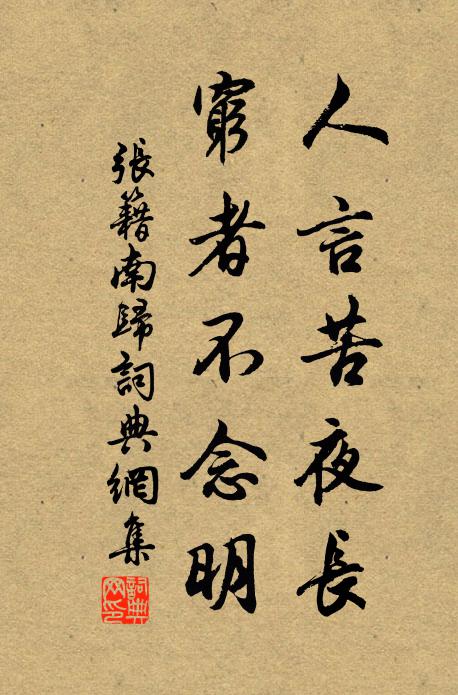 人言苦夜長
窮者不念明
張籍南歸詞典網集
詞典网印